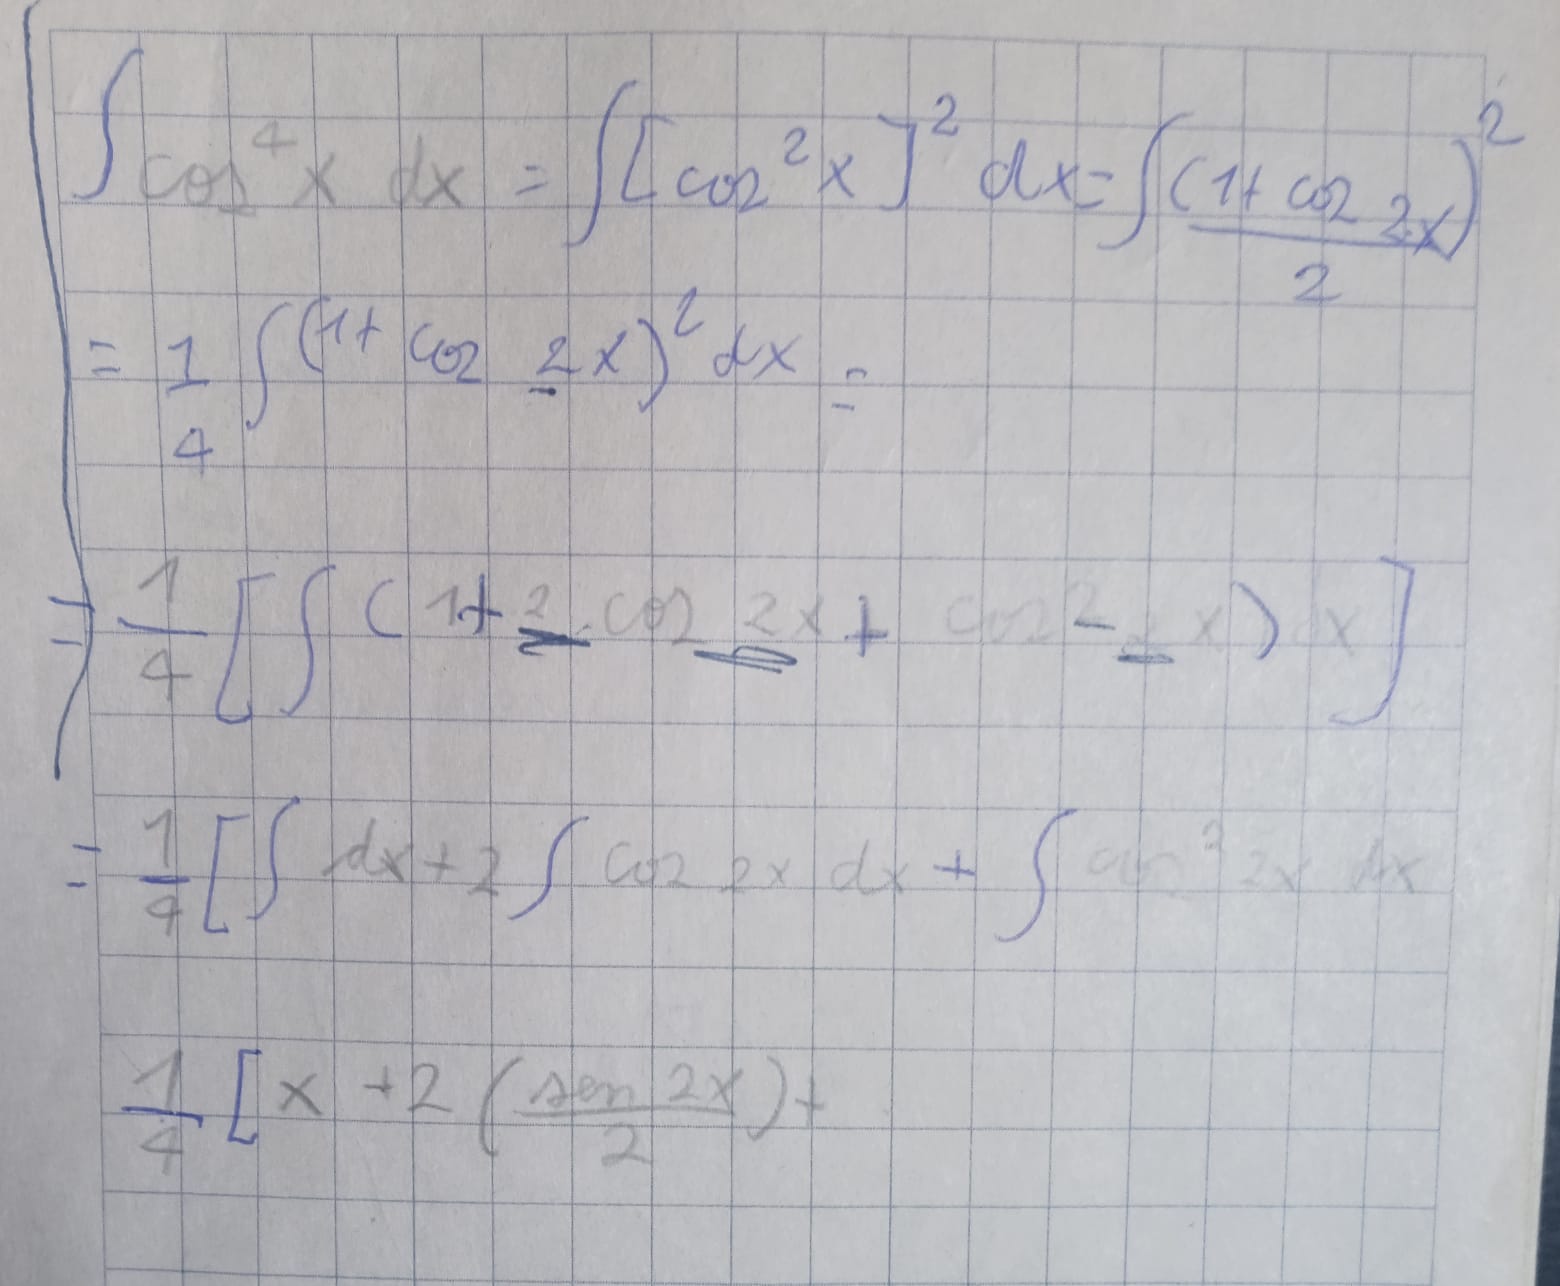 ∫ cos⁴ x dx = ∫ [cos² x]² dx = ∫ ((1 + cos 2x)/2)²
= 1/4 ∫ (1 + cos 2x)² dx =
= 1/4 [∫ (1 + 2 cos 2x + cos² 2x) dx]
= 1/4 [∫ dx + 2 ∫ cos 2x dx + ∫ cos² 2x dx
1/4 [x + 2 (sen 2x / 2) +